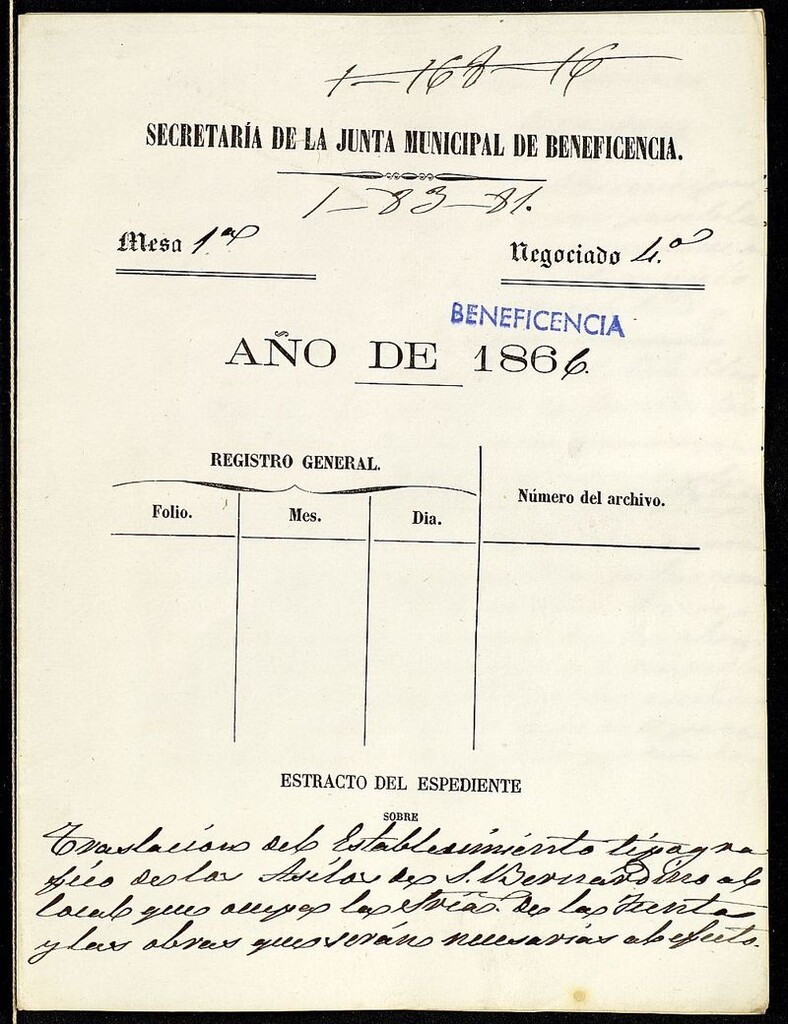 1-168-16
SECRETARÍA DE LA JUNTA MUNICIPAL DE BENEFICENCIA.
1-83-81.
Mesa 1ª
Negociado 4.º
BENEFICENCIA
AÑO DE 1866.
REGISTRO GENERAL.
Número del archivo.
Folio. Mes. Dia.
ESTRACTO DEL ESPEDIENTE
SOBRE
Traslacion del Establecimiento tipogra
fico de los Asilos de S. Bernardino al
local que ocupa la Sría. de la Junta
y las obras que serán necesarias al efecto.